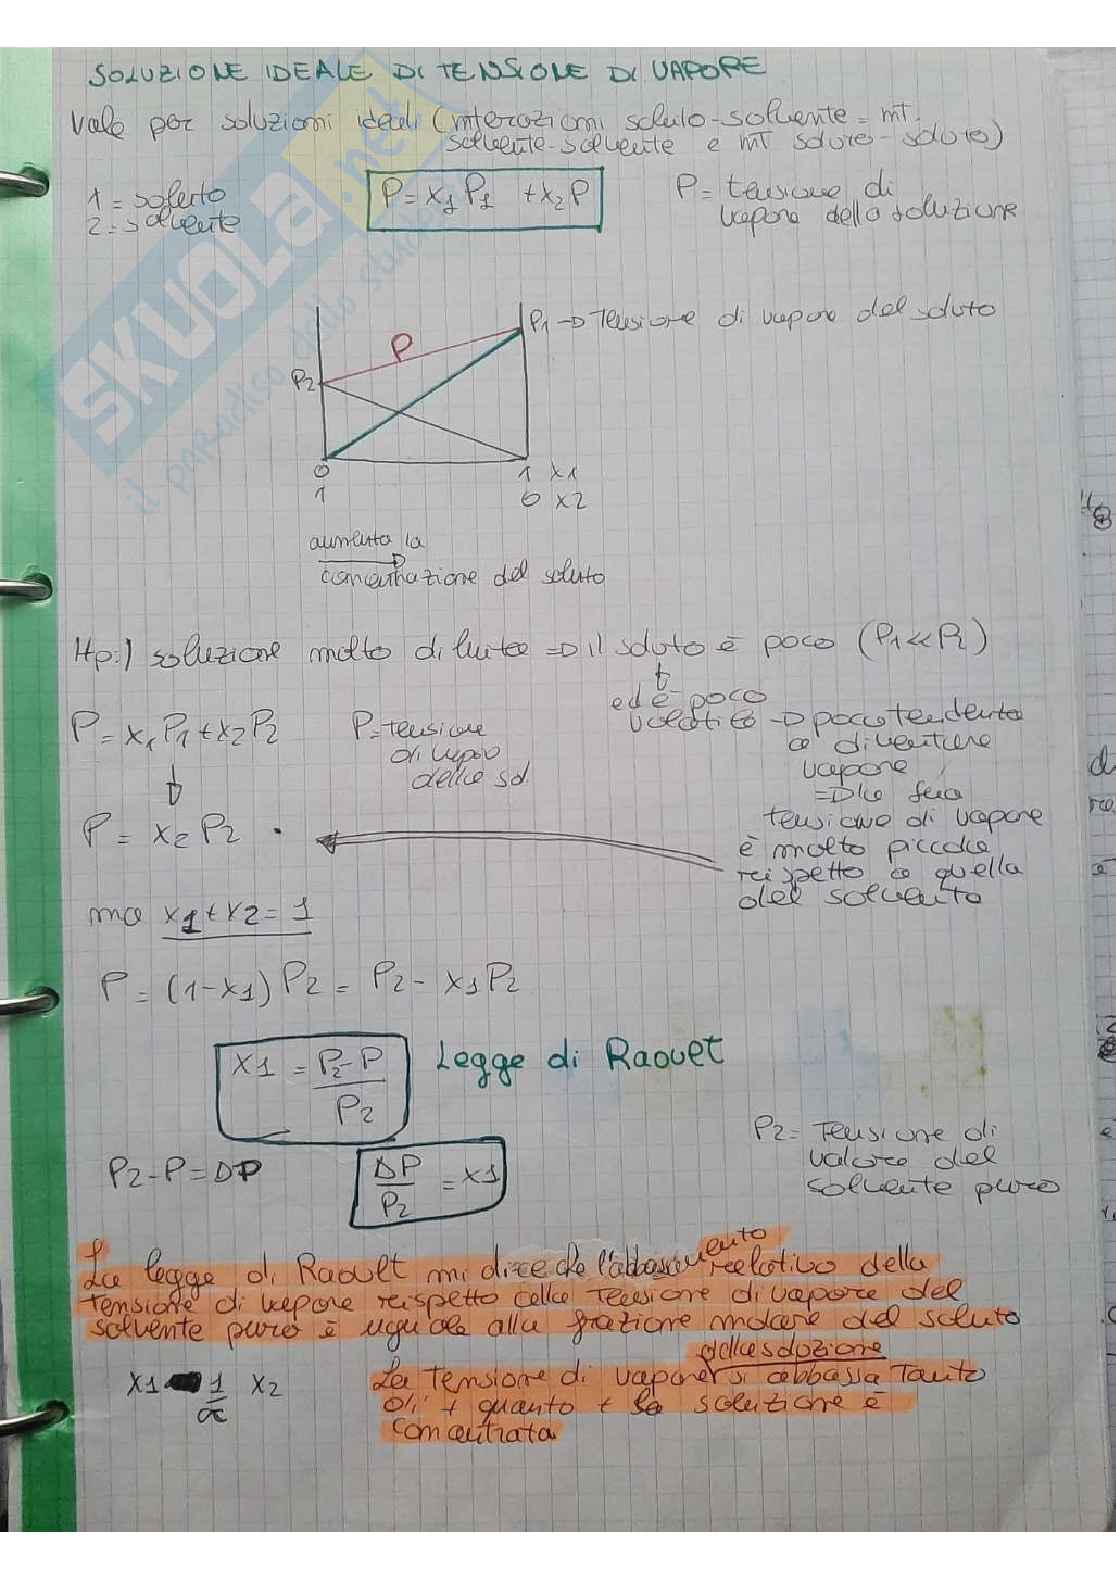 SOLUZIONE IDEALE DI TENSIONE DI VAPORE
Vale per soluzioni ideali (interazioni soluto-solvente = int.
solvente-solvente e int soluto-soluto)
1 = soluto
2 = solvente
P = x1 P1 + x2 P
P = tensione di
vapore della soluzione
P1 → Tensione di vapore del soluto
P
P2
0 1 x1
1 0 x2
aumenta la
concentrazione del soluto
Hp:) soluzione molto diluita ⇒ il soluto è poco (P1 << P2)
ed è poco
volatile → poco tendente
a diventare
vapore
⇒ la sua
tensione di vapore
è molto piccola
rispetto a quella
del solvente
P = x1 P1 + x2 P2
P = tensione
di vapore
della sol.
P = x2 P2
ma x1 + x2 = 1
P = (1-x1) P2 = P2 - x1 P2
x1 = P2-P / P2
Legge di Raoult
P2 - P = ΔP
ΔP / P2 = x1
P2 = Tensione di
valore del
solvente puro
La legge di Raoult mi dice che l'abbassamento relativo della
tensione di vapore rispetto alla tensione di vapore del
solvente puro è uguale alla frazione molare del soluto
x1 1/α x2
La tensione di vapore della soluzione si abbassa tanto
di + quanto + la soluzione è
concentrata
SKUOLA.net
il paradiso dello studente